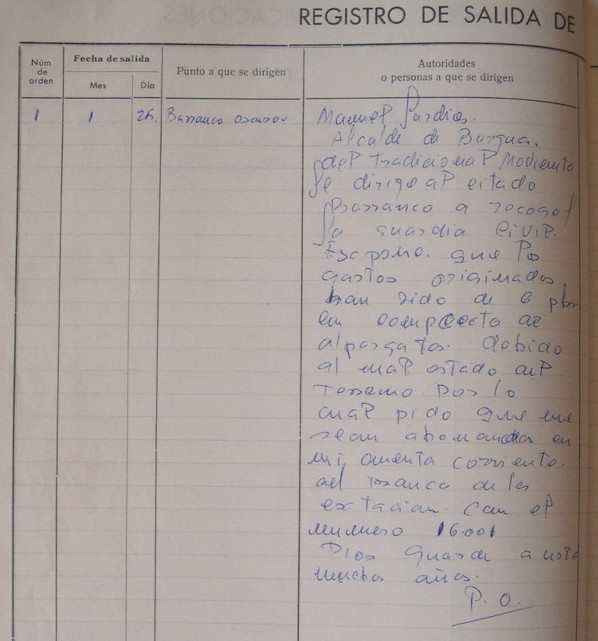 REGISTRO DE SALIDA DE
Núm de orden
Fecha de salida
Mes
Dia
Punto a que se dirigén
Autoridades
o personas a que se dirigen
1 1 26. Barranco
Manuel
Alcalde de
del tradicional Moviento
Se dirige al citado
Barranco a recoger
la guardia civil.
que los
gastos originados
han sido de 6
en de
alpargatas debido
al mal estado del
terreno Por lo
cual pido que me
sean abonandas en
mi cuenta corriente
del de las
extacion. Con el
numero 16.001
Dios guarde a
muchos años.
P. O.